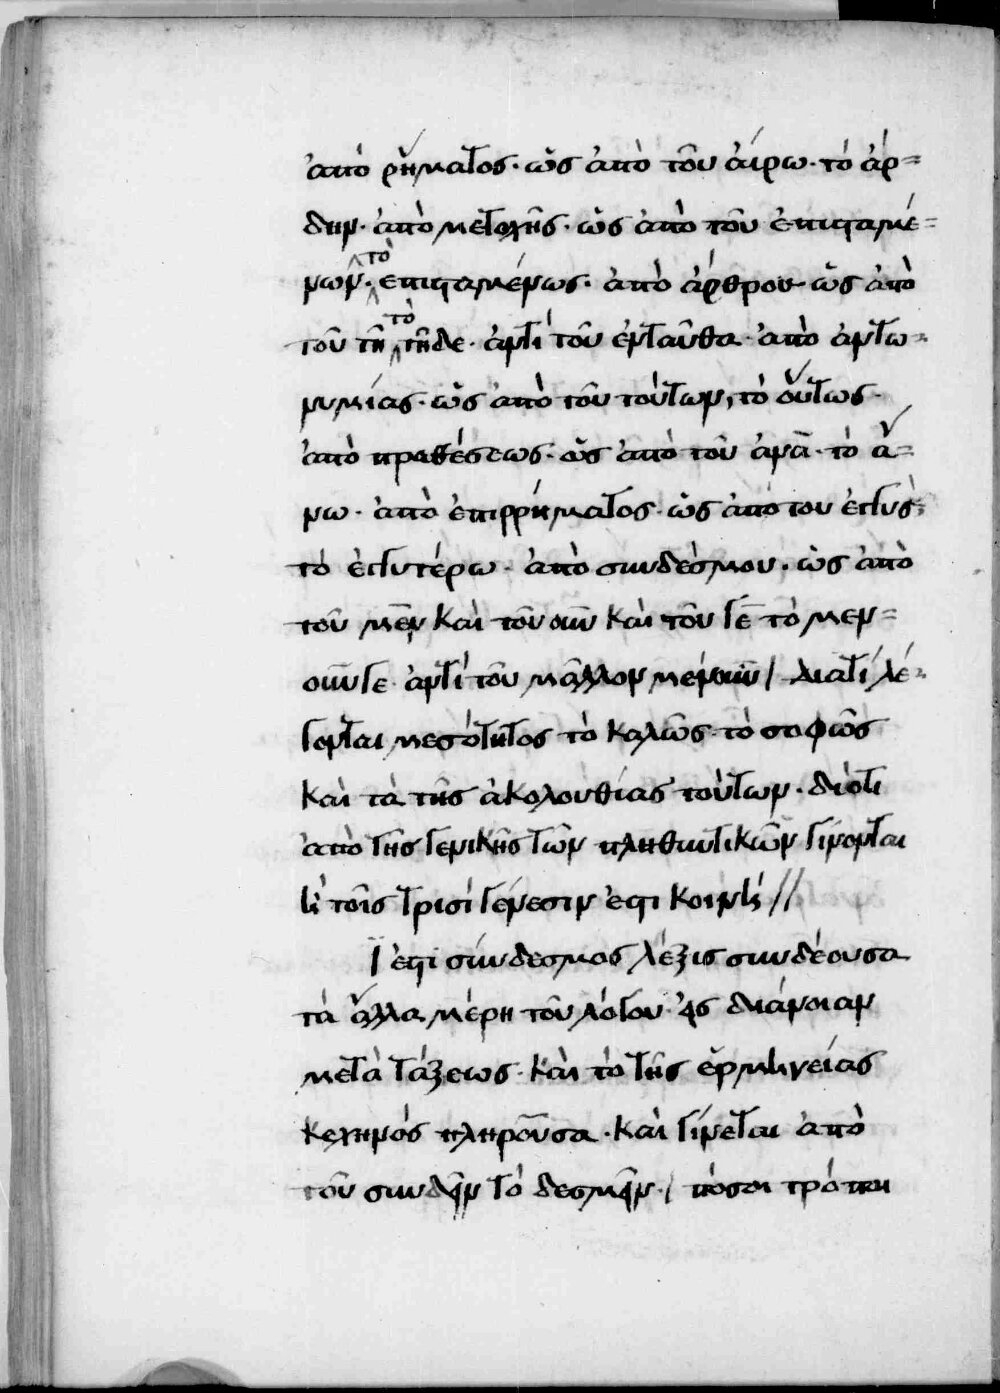 ἀπὸ ῥήματος· ὡς ἀπὸ τοῦ αἴρω· τὸ ἄρ=
δην· ἀπὸ μετοχῆς· ὡς ἀπὸ τοῦ ἐπισταμέ=
νων· τὸ ἐπισταμένως· ἀπὸ ἄρθρου ὡς ἀπὸ
τοῦ τῆ τὸ τῆδε· ἀντὶ τοῦ ἐνταῦθα· ἀπὸ ἀντω=
νυμίας· ὡς ἀπὸ τοῦ τούτων, τὸ οὕτως·
ἀπὸ προθέσεως· ὡς ἀπὸ τοῦ ἀνὰ· τὸ ἄ=
νω· ἀπὸ ἐπιρρήματος· ὡς ἀπὸ του ἐγγὺς
τὸ ἐγγυτέρω· ἀπὸ συνδέσμου· ὡς ἀπὸ
τοῦ μὲν καὶ τοῦ οὖν καὶ τοῦ γὲ τὸ μεν=
οῦνγε· ἀντὶ τοῦ μᾶλλον μένουν / διατί λέ=
γονται μεσότητος τὸ καλῶς· τὸ σοφῶς
καὶ τὰ τῆς ἀκολουθίας τούτων· διότι
ἀπὸ τῆς γενικῆς τῶν πληθυντικῶν γίνονται
ἣ τοῖς τρισὶ γένεσιν ἐστι κοινή //
Τί ἐστὶ σύνδεσμος λέξις συνδέουσα
τὰ ἄλλα μέρη τοῦ λόγου· εἰς διάνοιαν
μετὰ τάξεως· καὶ τὸ τῆς ἑρμηνείας
κεχηνὸς πληροῦσα· καὶ γίνεται ἀπὸ
τοῦ συνδεῖν τὸ δεσμεῖν· / πόσοι τρόποι